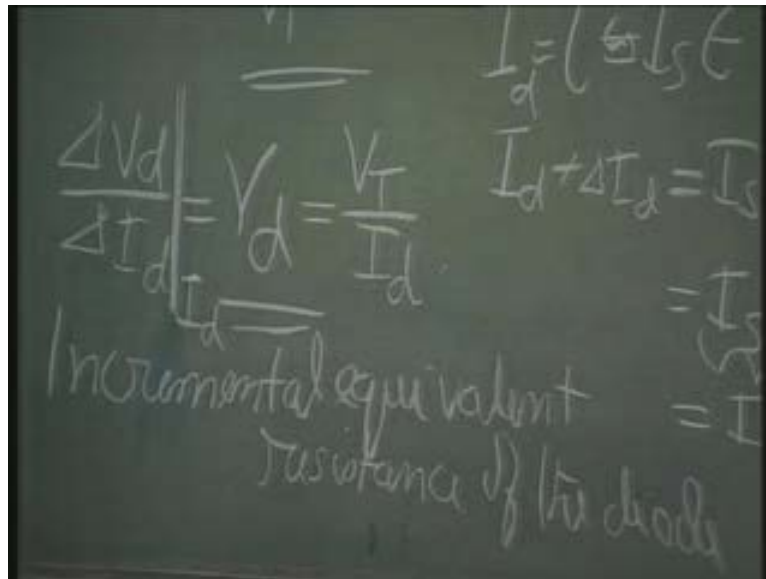 I_d = ( ≒ I_S e
ΔV_d / ΔI_d |_{I_d} = r_d = V_T / I_d
I_d + ΔI_d = I_S
= I_S
= I
Incremental equivalent
resistance of the diode